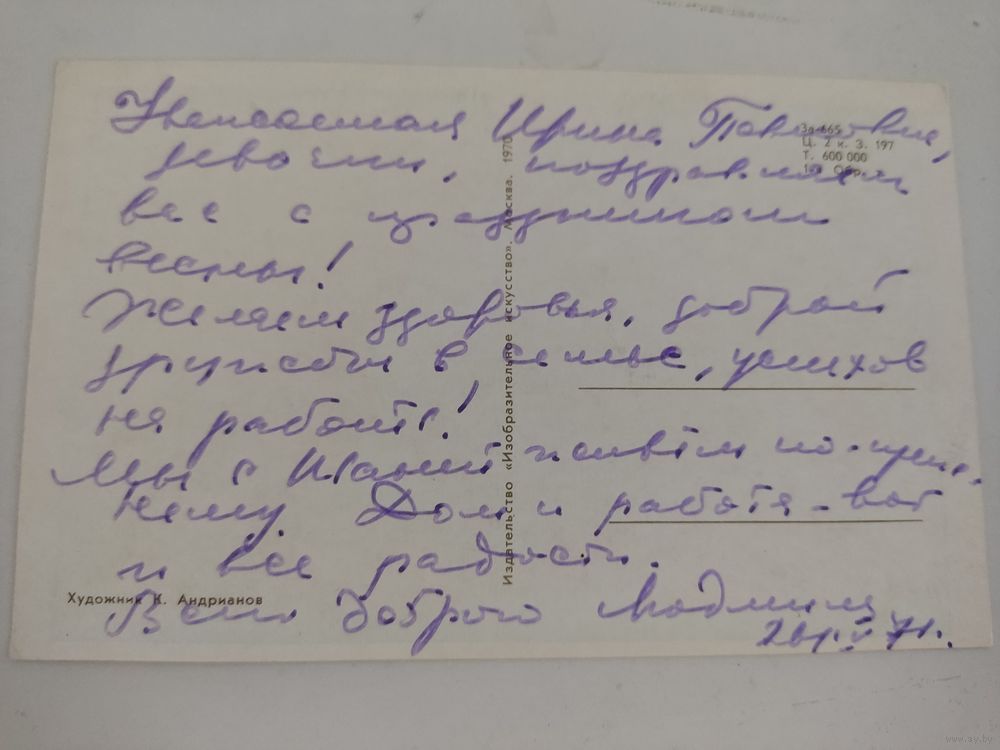 Уважаемая Ирина Павловна,
девочки, поздравляем
вас с праздником
весны!
Желаем здоровья, доброй
дружбы в семье, успехов
на работе!
Мы с живём по-преж-
нему. Дом и работа - вот
и все радости.
Всего доброго Людмила
71г.
Художник К. Андрианов
Издательство «Изобразительное искусство». Москва. 1970
Зд-665
Ц. 2 к. З. 197
Т. 600 000
www.ay.by